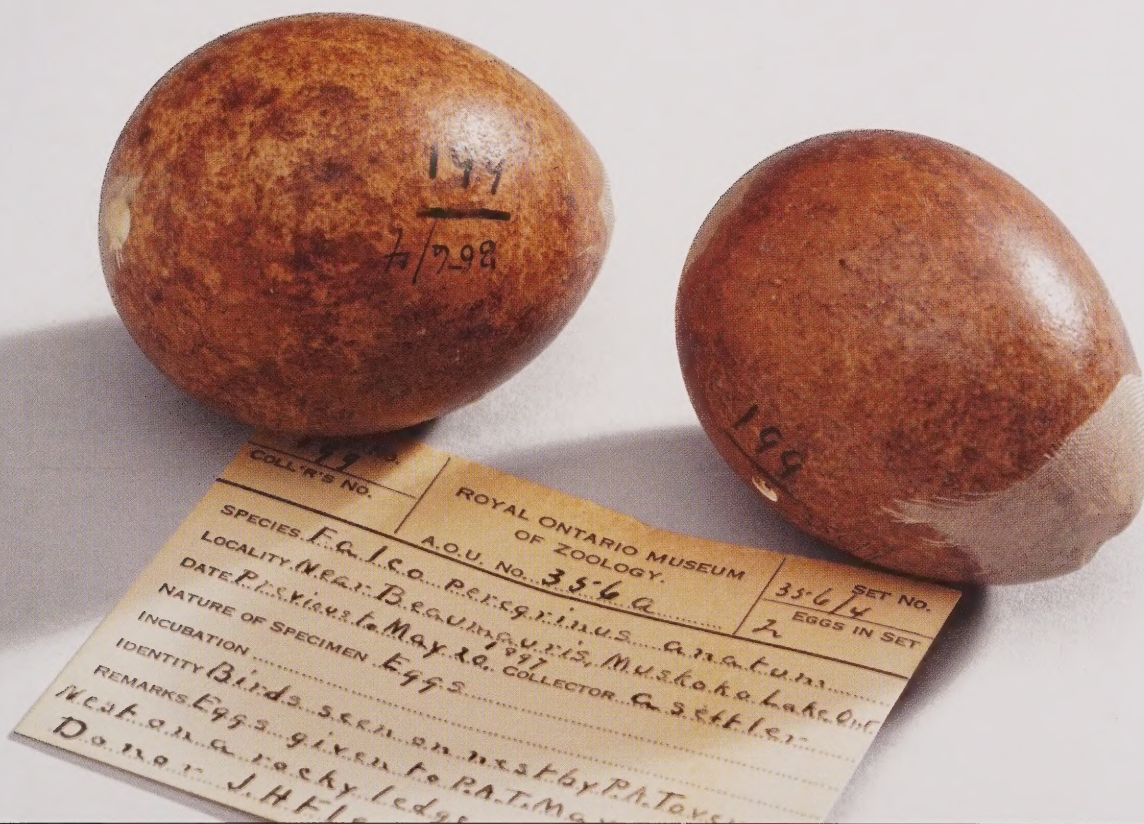 199
356/4
199
COLL'R'S NO.
ROYAL ONTARIO MUSEUM
OF ZOOLOGY.
A.O.U. No. 356a
SET NO.
356/4
EGGS IN SET
2
SPECIES Falco peregrinus anatum
LOCALITY Near Beaumauris, Muskoka Lake Ont
DATE Previous to May 20 COLLECTOR a settler
NATURE OF SPECIMEN Eggs
INCUBATION
IDENTITY Birds seen on nest by P.A. Tave
REMARKS Eggs given to P.A.T. Ma
Nest on a rocky ledge
Donor J.H Fle